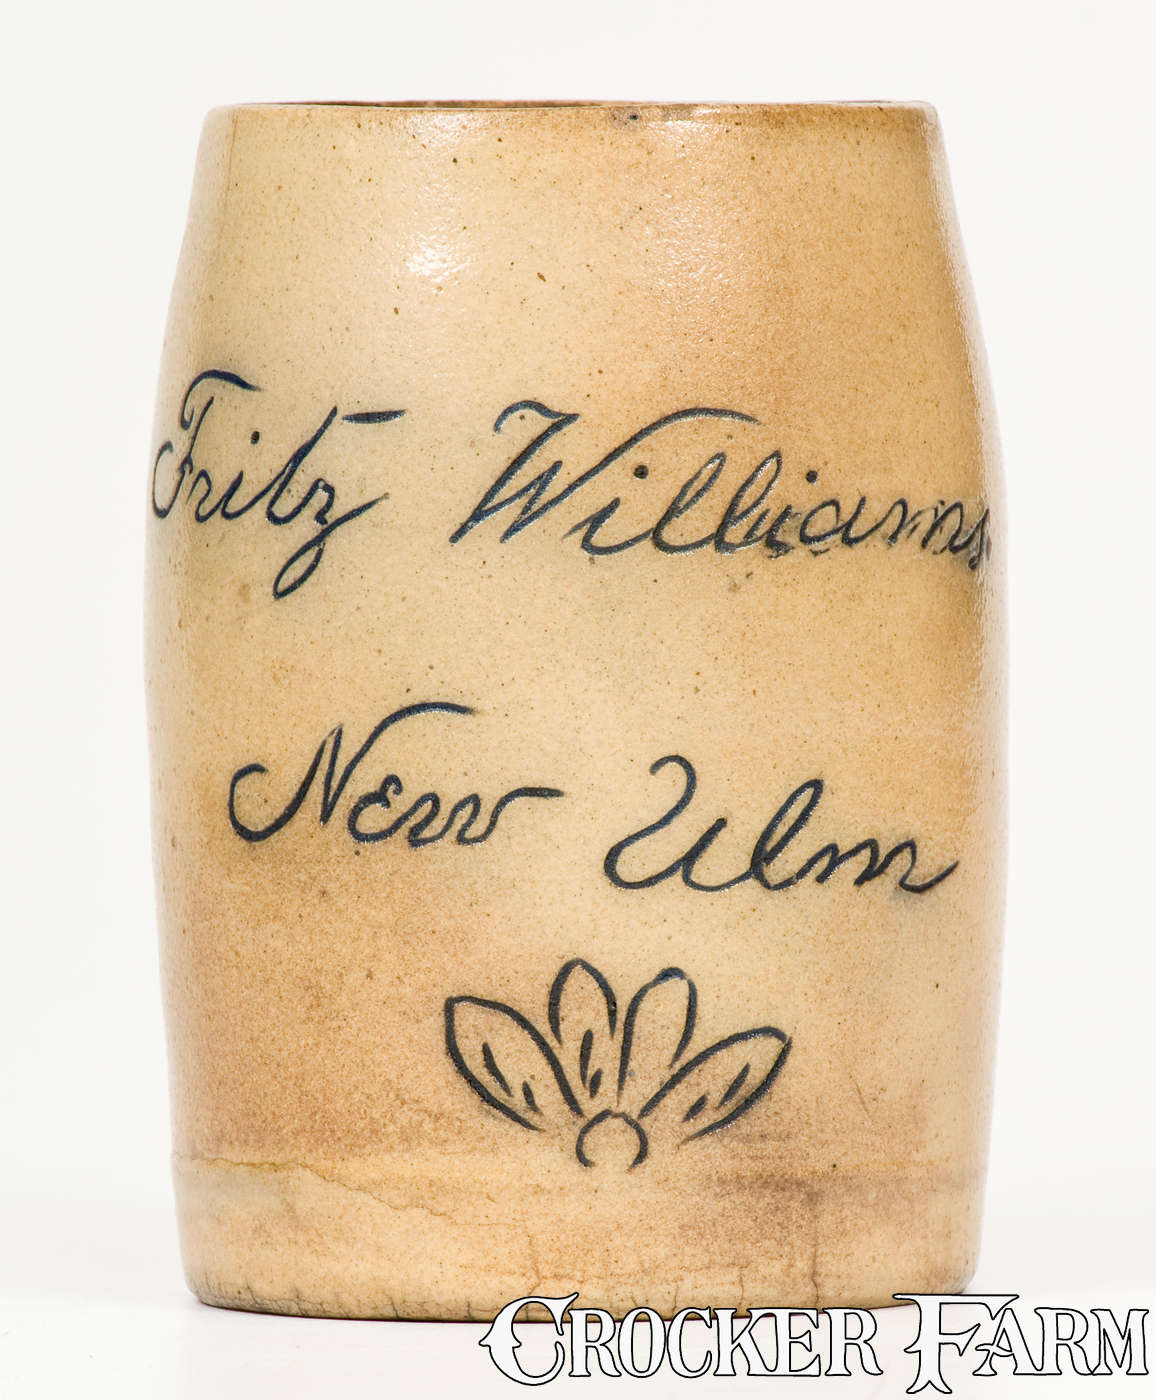 Fritz Williams.
New Ulm
CROCKER FARM